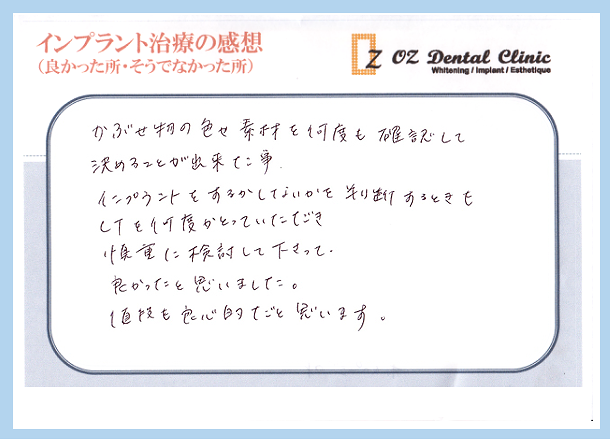 インプラント治療の感想
（良かった所・そうでなかった所）
OZ Dental Clinic
Whitening / Implant / Esthetique
かぶせ物の色せ素材を何度も確認して
決めることが出来た事.
インプラントをするかしないかを判断するときも
CTを何度かとっていただき
慎重に検討して下さって.
良かったと思いました。
値段も良心的だと思います。